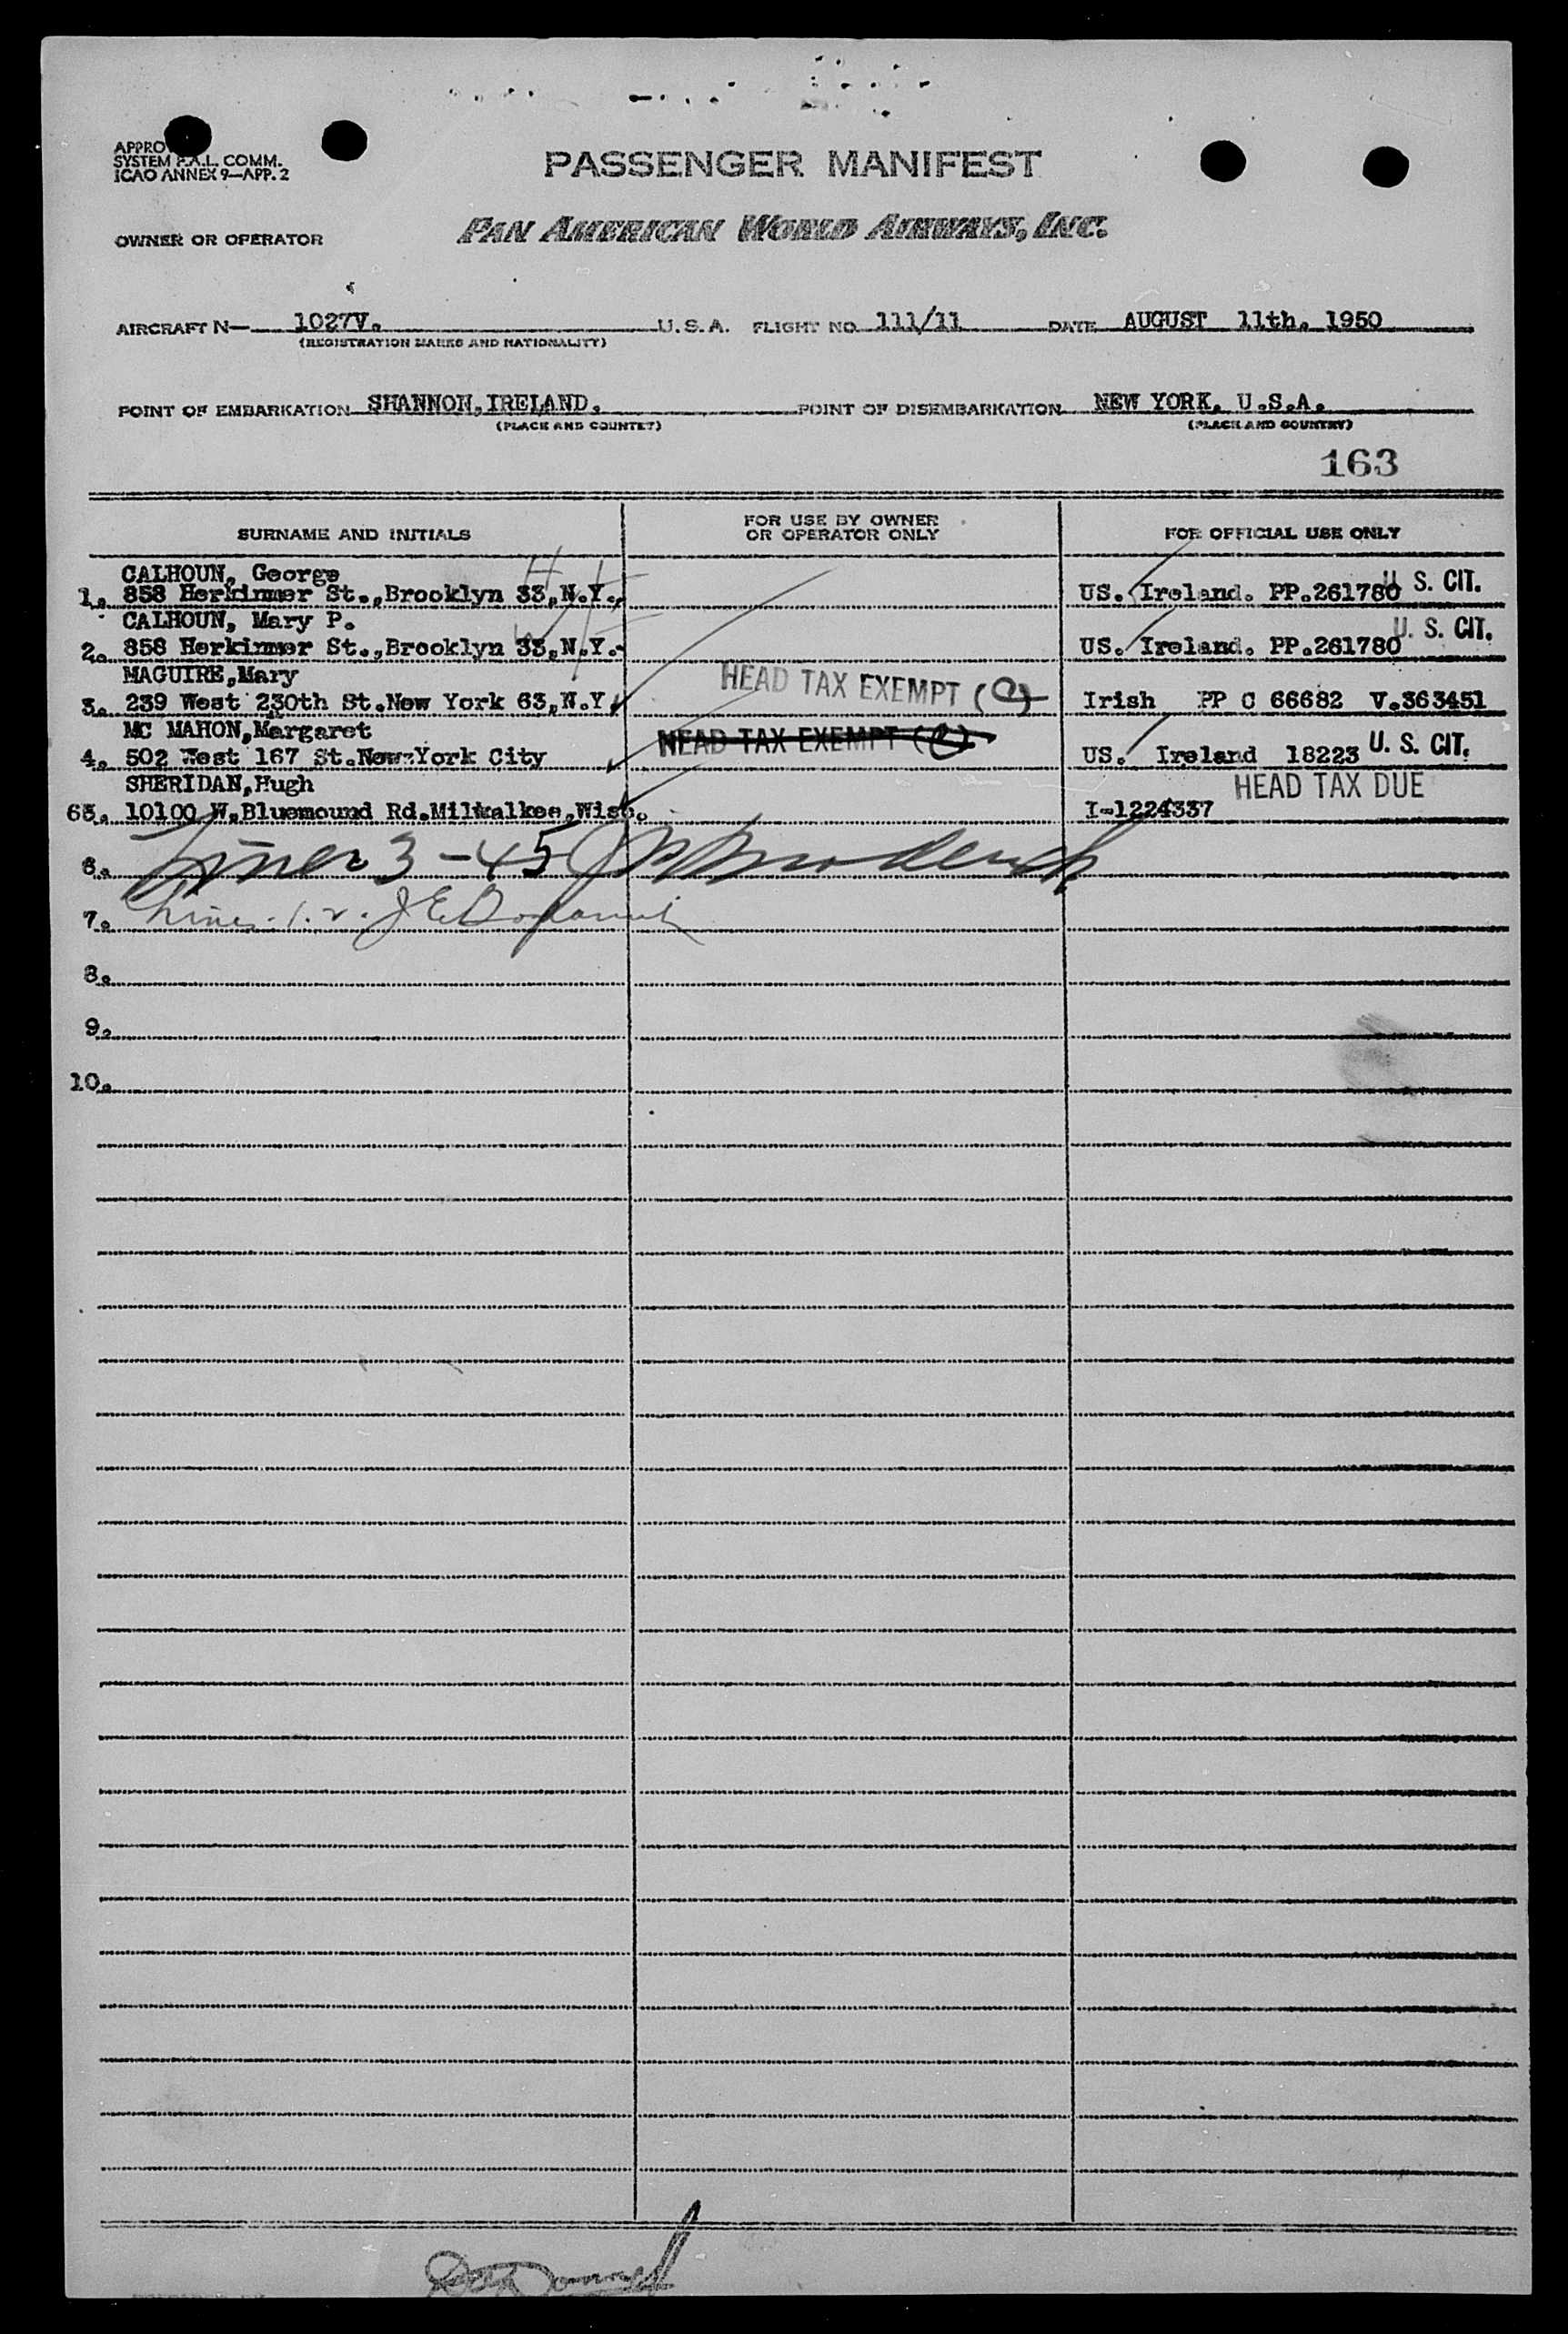 APPRO
SYSTEM F.A.L. COMM.
ICAO ANNEX 9—APP. 2
PASSENGER MANIFEST
OWNER OR OPERATOR PAN AMERICAN WORLD AIRWAYS, INC.
AIRCRAFT N— 1027V. U.S.A. FLIGHT NO. 111/11 DATE AUGUST 11th. 1950
(REGISTRATION MARKS AND NATIONALITY)
POINT OF EMBARKATION SHANNON, IRELAND. POINT OF DISEMBARKATION NEW YORK, U.S.A.
(PLACE AND COUNTRY) (PLACE AND COUNTRY)
163
SURNAME AND INITIALS FOR USE BY OWNER OR OPERATOR ONLY FOR OFFICIAL USE ONLY
CALHOUN, George
1. 858 Herkimmer St.,Brooklyn 33,N.Y. US. Ireland. PP.261780 U. S. CIT.
CALHOUN, Mary P.
2. 858 Herkimmer St.,Brooklyn 33,N.Y. US. Ireland. PP.261780 U. S. CIT.
MAGUIRE,Mary
3. 239 West 230th St.New York 63,N.Y. HEAD TAX EXEMPT (e) Irish PP C 66682 V.363451
MC MAHON,Margaret
4. 502 West 167 St.New York City HEAD TAX EXEMPT (e) US. Ireland 18223 U. S. CIT.
SHERIDAN,Hugh HEAD TAX DUE
65. 10100 W.Bluemound Rd.Milwalkee,Wisc. I-1224337
6. Lines 3-45
7. Lines 1.2.
8.
9.
10.